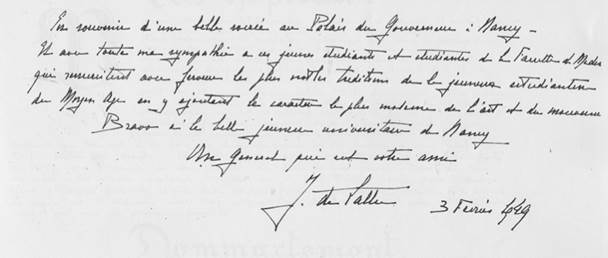 En souvenir d'une belle soirée au Palais du Gouverneur à Nancy -
Et avec toute ma sympathie à ces jeunes étudiants et étudiantes de la Faculté de Mèdec
qui ressuscitent avec ferveur les plus nobles traditions de la jeunesse estudiantine
du Moyen Age en y ajoutant le caractère le plus moderne de l'art et du mouvement
Bravo à la belle jeunesse universitaire de Nancy
Un General qui est votre ami
J. de Lattre
3 Février 1949